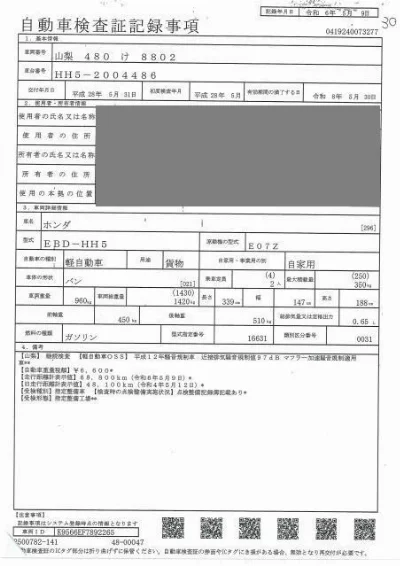 自動車検査証記録事項
記録年月日 令和 6年 5月 9日
30
0419240073277
1. 基本情報
車両番号 山梨 480 け 8802
車台番号 HH5-2004486
交付年月日 平成 28年 5月 31日 初度検査年月 平成 28年 5月 有効期間の満了する日 令和 8年 5月 30日
2. 使用者・所有者情報
使用者の氏名又は名称
使用者の住所
所有者の氏名又は名称
所有者の住所
使用の本拠の位置
3. 車両詳細情報
車名 ホンダ [296]
型式 EBD-HH5 原動機の型式 E07Z
自動車の種別 軽自動車 用途 貨物 自家用・事業用の別 自家用
車体の形状 バン [021] 乗車定員 (4) 2人 最大積載量 (250) 350kg
車両重量 960kg 車両総重量 (1430) 1420kg 長さ 339cm 幅 147cm 高さ 188cm
前軸重 450kg 後軸重 510kg 総排気量又は定格出力 0.65 L
燃料の種類 ガソリン 型式指定番号 16631 類別区分番号 0031
4. 備考
[山梨] 継続検査 [軽自動車OSS] 平成12年騒音規制車 近接排気騒音規制値97dB マフラー加速騒音規制適用車**
[自動車重量税額] ¥6,600*
[走行距離計表示値] (令和6年5月9日)*
[旧走行距離計表示値] 48,100km (令和4年5月12日)*
[受検種別] 指定整備車 [検査時の点検整備実施状況] 点検整備記録簿記載あり*
[受検形態] 指定整備工場**
【注意事項】
記録事項はシステム登録時点の情報となります
車両ID E9566EF7892265
2500782-141 48-00047
自動車検査証のICタグ部分は折り曲げずに保管ください。自動車検査証の券面やICタグにき損がある場合、無効となり再交付が必要です。